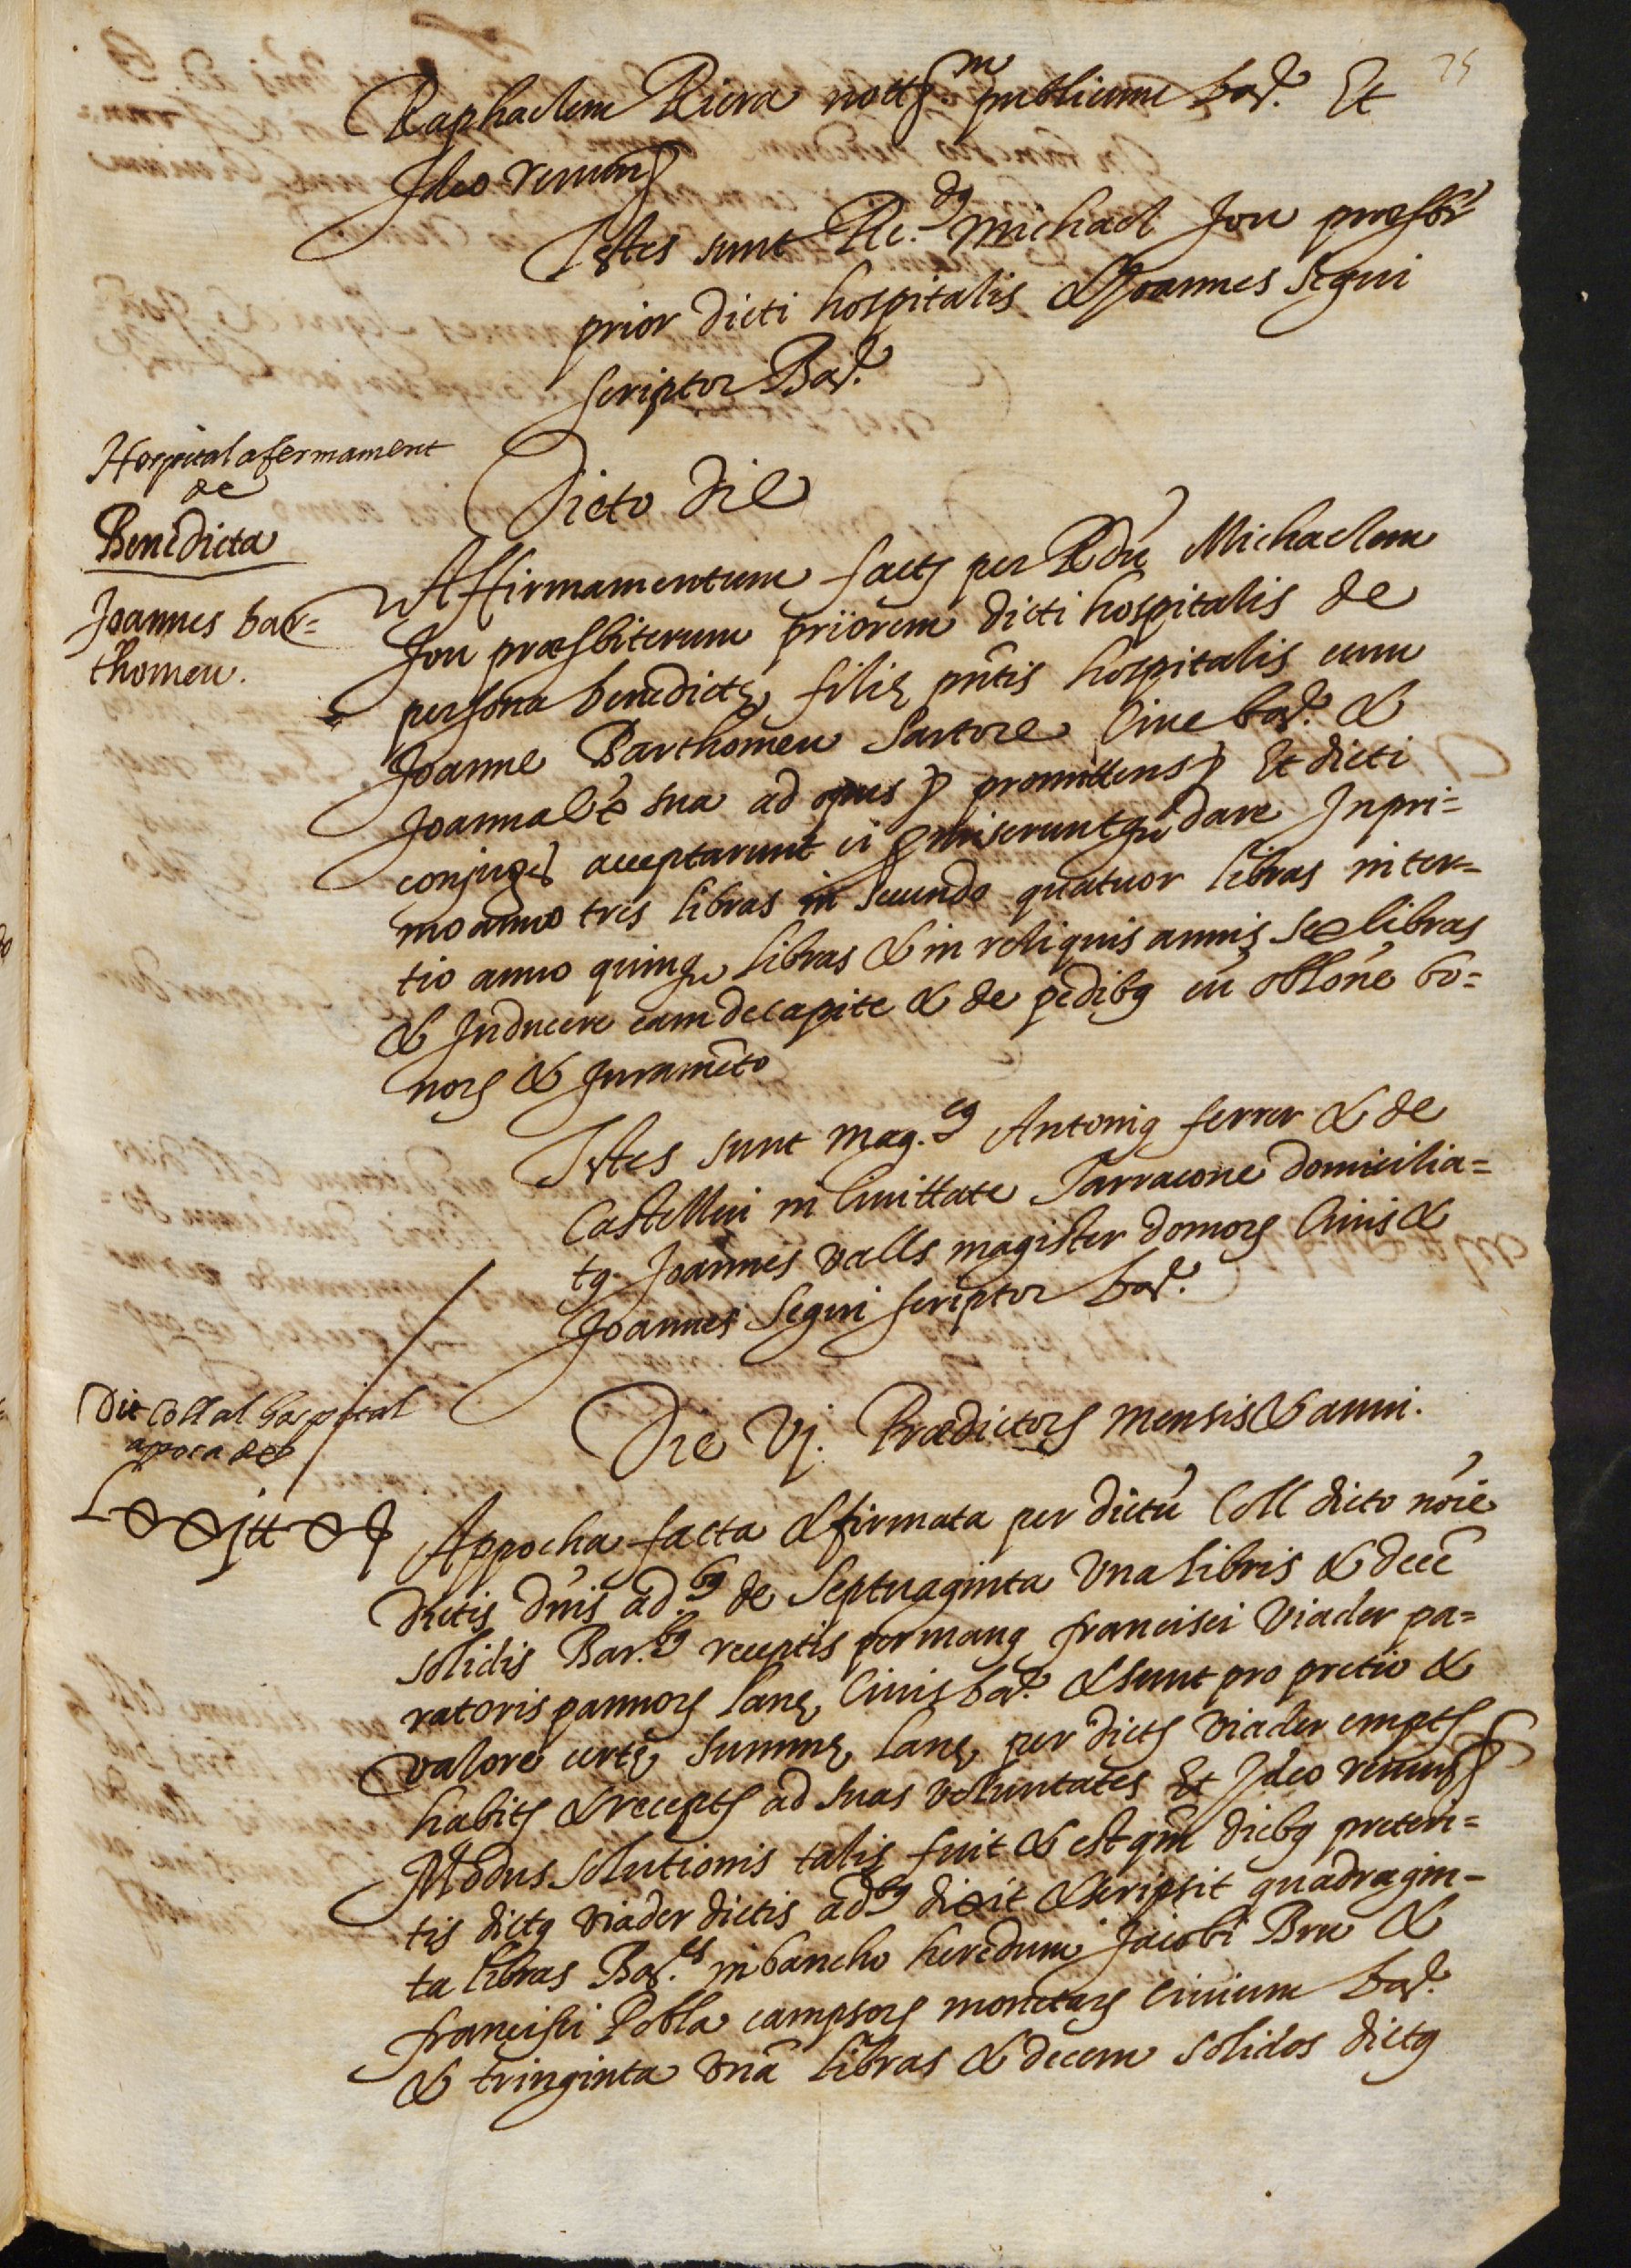 75
Raphaelem Riera nott.m publicum bar. Et
Ideo renun
Testes sunt Re.dus Michael Jou præsbr
prior dicti hospitalis & Joannes Segui
scriptor Bar.
Hospital afermament
de
Benedicta
Joannes bar=
thomeu.
Dicto die
Affirmamentum fact per Rdu Michaelem
Jou præsbiterum priorem dicti hospitalis de
persona benedictę filię pntis hospitalis cum
Joanne Barthomeu Sartore Cive bar. &
Joanna sua ad opus promittens Et dicti
conjuges acceptarunt ei promiseruntque dare Inpri=
mo anno tres libras in secundo quatuor libras in ter=
tio anno quinque libras & in reliquis annis sex libras
& Inducere eam de capite & de pedibus cu oblone bo=
norum & Juramento
Testes sunt mag.cus Antonius ferrer & de
Castellui in Civittate Tarracone domicilia=
tus Joannes valls magister domorum Civis &
Joannes Segui scriptor bar.
Die Vj. Prædictorum mensis & anni.
Dit Coll al hospital
appoca de
Appocha facta & firmata per dictu Coll dicto noie
Dictis dnis ad.bus de Septuaginta una libris & dece
solidis Bar.bus receptis per manus francisci Viader pa=
ratoris pannorum lanę Civis bar. & sunt pro pretio &
valore certę summę lanę per dict Viader empt
habit & recept ad suas voluntates Et Ideo renun
Modus solutionis talis fuit & est qm diebus preteri=
tis dictus Viader dictis adbus dixit & scripsit quadragin=
ta libras Bar.es in bancho heredum Jacobi Bru &
francisci Pobla campsorum monetarum Civium bar.
& tringinta una libras & decem solidos dictus